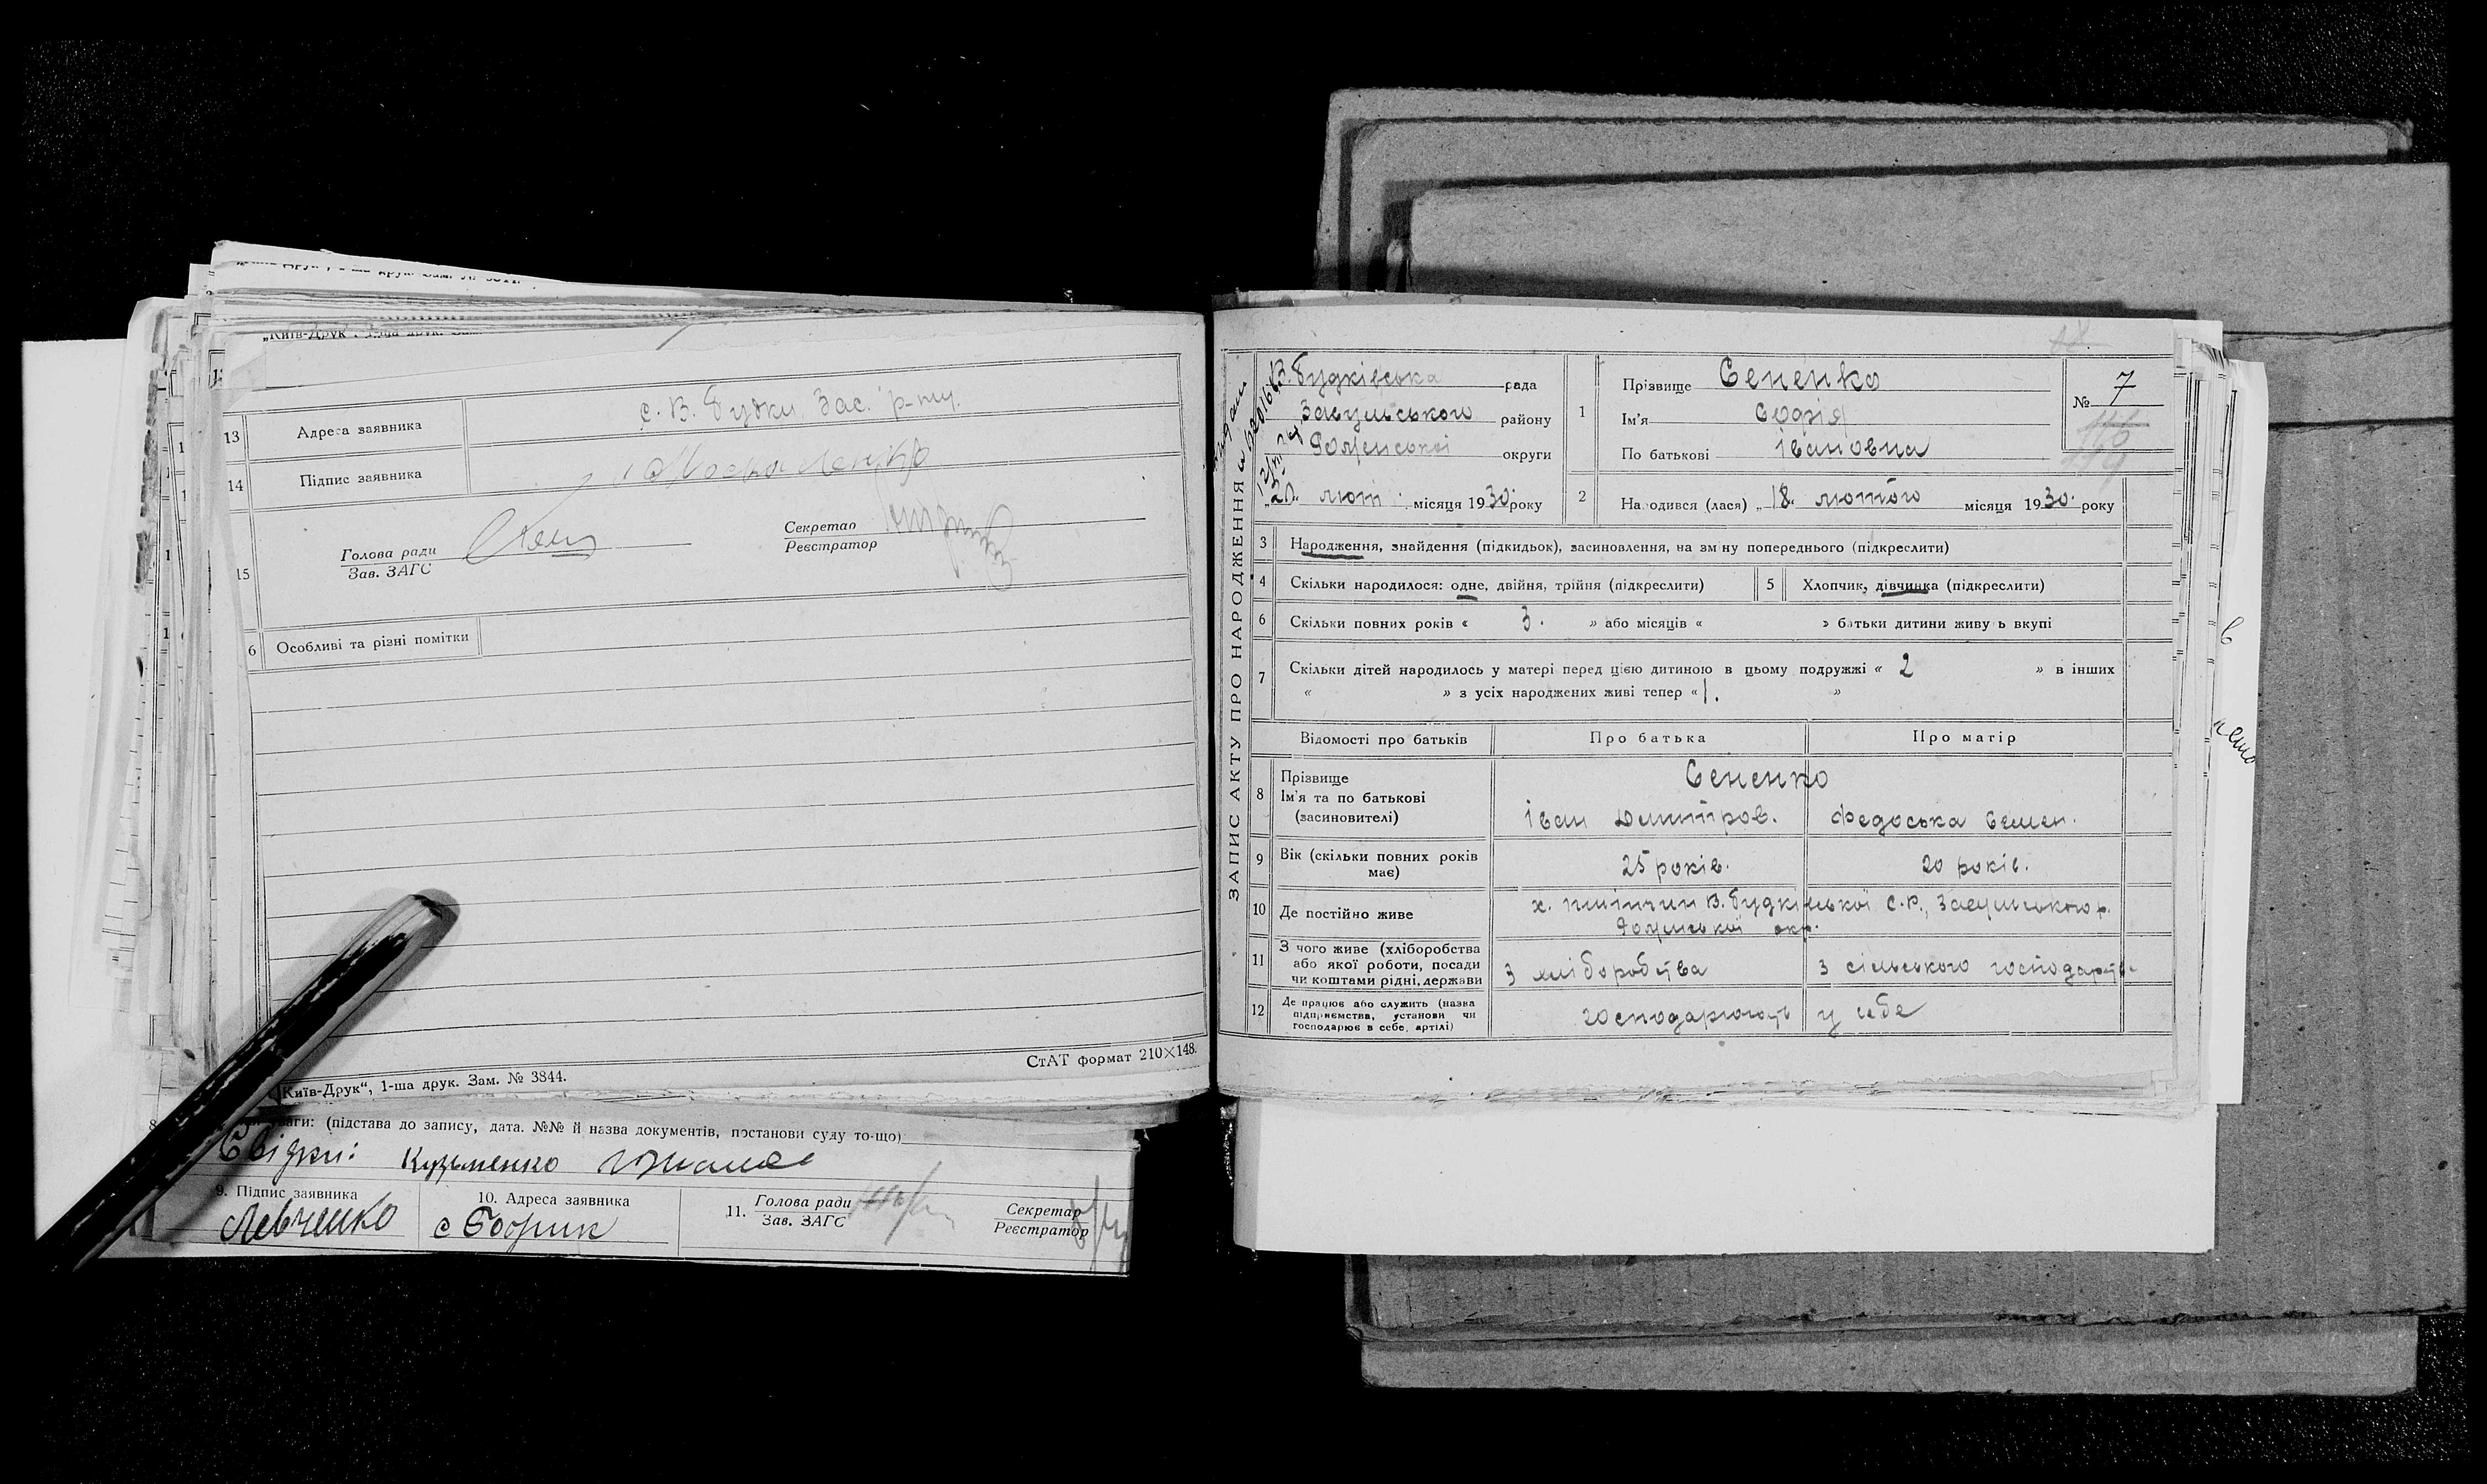 „Київ-Друк", 1-ша друк. Зам.
13 Адреса заявника с. В. Будки, Зас. р-ну.
14 Підпис заявника
15 Голова ради
Зав. ЗАГС
Секретар
Реєстратор
6 Особливі та різні помітки
СтАТ формат 210×148.
Київ-Друк", 1-ша друк. Зам. № 3844.
(підстава до запису, дата. №№ й назва документів, постанови суду то-що)
Свідки: Кузьменко
9. Підпис заявника
Левченко
10. Адреса заявника
с Бобрик
11. Голова ради
Зав. ЗАГС
Секретар
Реєстратор
ЗАПИС АКТУ ПРО НАРОДЖЕННЯ
В. Будківська рада
Засульського району
Роменської округи
„20„ лют. місяця 1930 року
1 Прізвище Сененко
Ім'я Софія
По батькові Івановна
№ 7
2 Народився (лася) „18„ лютого місяця 1930 року
3 Народження, знайдення (підкидьок), засиновлення, на зміну попереднього (підкреслити)
4 Скільки народилося: одне, двійня, трійня (підкреслити)
5 Хлопчик, дівчинка (підкреслити)
6 Скільки повних років « 3. » або місяців « » батьки дитини живуть вкупі
7 Скільки дітей народилось у матері перед цією дитиною в цьому подружжі « 2 » в інших
« » з усіх народжених живі тепер « 1. »
Відомості про батьків Про батька Про матір
8 Прізвище
Ім'я та по батькові
(засиновителі)
Сененко
Іван Дмитров. Федоська Семен.
9 Вік (скільки повних років має) 25 років. 20 років.
10 Де постійно живе х. В. Будківської С.Р., Засульського р.
Роменської окр.
11 З чого живе (хліборобства
або якої роботи, посади
чи коштами рідні, держави
з хліборобства з сільського господарств.
12 Де працює або служить (назва
підприємства, установи чи
господарює в себе, артілі)
господарюють у себе